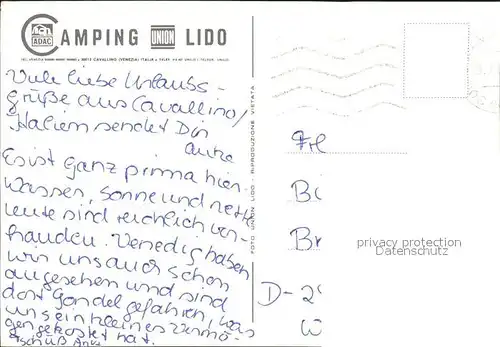 CAMPING UNION LIDO
ADAC
Viele liebe Urlaubs-
grüße aus Cavallino/
Italien sendet Dir
Anke
Es ist ganz prima hier.
Wasser, Sonne und nette
Leute sind reichlich vor-
handen. Venedig haben
wir uns auch schon
angesehen und sind
dort Gondel gefahren, was
uns ein kleines Vermö-
gen gekostet hat.
Tschüß Anke
FOTO UNION LIDO - RIPRODUZIONE VIETATA
Frl
Bi
Br
privacy protection
Datenschutz
D-29
W